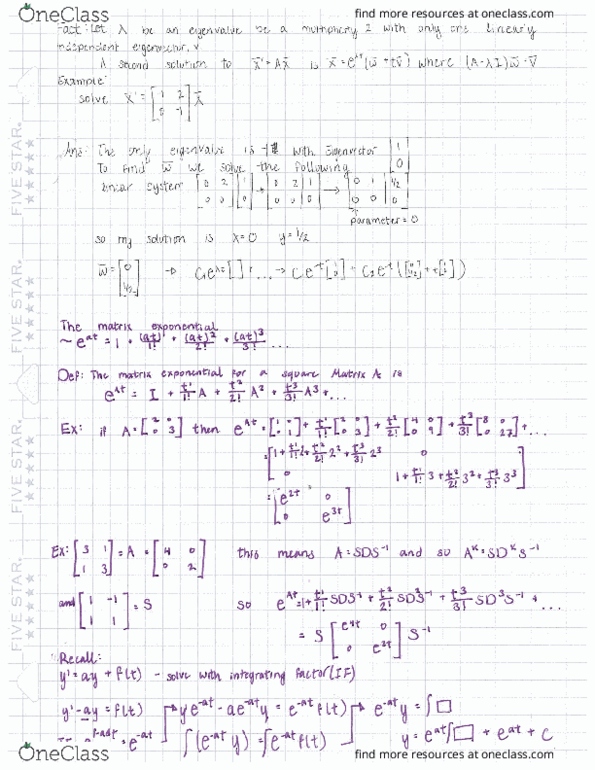 OneClass
find more resources at oneclass.com
Fact: Let λ be an eigenvalue be a multiplicity 2 with only one linearly
independent eigenvector, v
A second solution to x' = Ax is x = e^λt (w + tv) where (A-λI)w = v
Example:
solve x' = [1 2; 0 -1] x
Ans: The only eigenvalue is -1 with Eigenvector [1; 0]
To find w we solve the following
linear system [0 2 | 1; 0 0 | 0] → [0 2 | 1; 0 0 | 0] → [0 1 | 1/2; 0 0 | 0]
↑ parameter = 0
so my solution is x=0 y=1/2
w = [0; 1/2]
The matrix exponential
~ e^at = 1 + (at)^1/1! + (at)^2/2! + (at)^3/3! ...
Def: The matrix exponential for a square Matrix A is
e^At = I + t^1/1! A + t^2/2! A^2 + t^3/3! A^3 + ...
Ex: if A = [2 0; 0 3] then e^At = [1 0; 0 1] + t^1/1! [2 0; 0 3] + t^2/2! [4 0; 0 9] + t^3/3! [8 0; 0 27] + ...
= [1 + t^1/1! 2 + t^2/2! 2^2 + t^3/3! 2^3 0; 0 1 + t^1/1! 3 + t^2/2! 3^2 + t^3/3! 3^3]
= [e^2t 0; 0 e^3t]
Ex: [3 1; 1 3] = A = [4 0; 0 2] this means A = SDS^-1 and so A^k = SD^kS^-1
and [1 -1; 1 1] = S so e^At = 1 + t^1/1! SDS^-1 + t^2/2! SD^2S^-1 + t^3/3! SD^3S^-1 + ...
= S [e^4t 0; 0 e^2t] S^-1
Recall:
y' = ay + f(t) - solve with integrating factor (IF)
y' - ay = f(t) ye^-at - ae^-at y = e^-at f(t) e^-at y = ∫□
= e^-at ∫(e^-at y) = ∫e^-at f(t) y = e^at ∫□ + e^at + c
FIVE STAR.
FIVE STAR.
FIVE STAR.
FIVE STAR.
OneClass
find more resources at oneclass.com